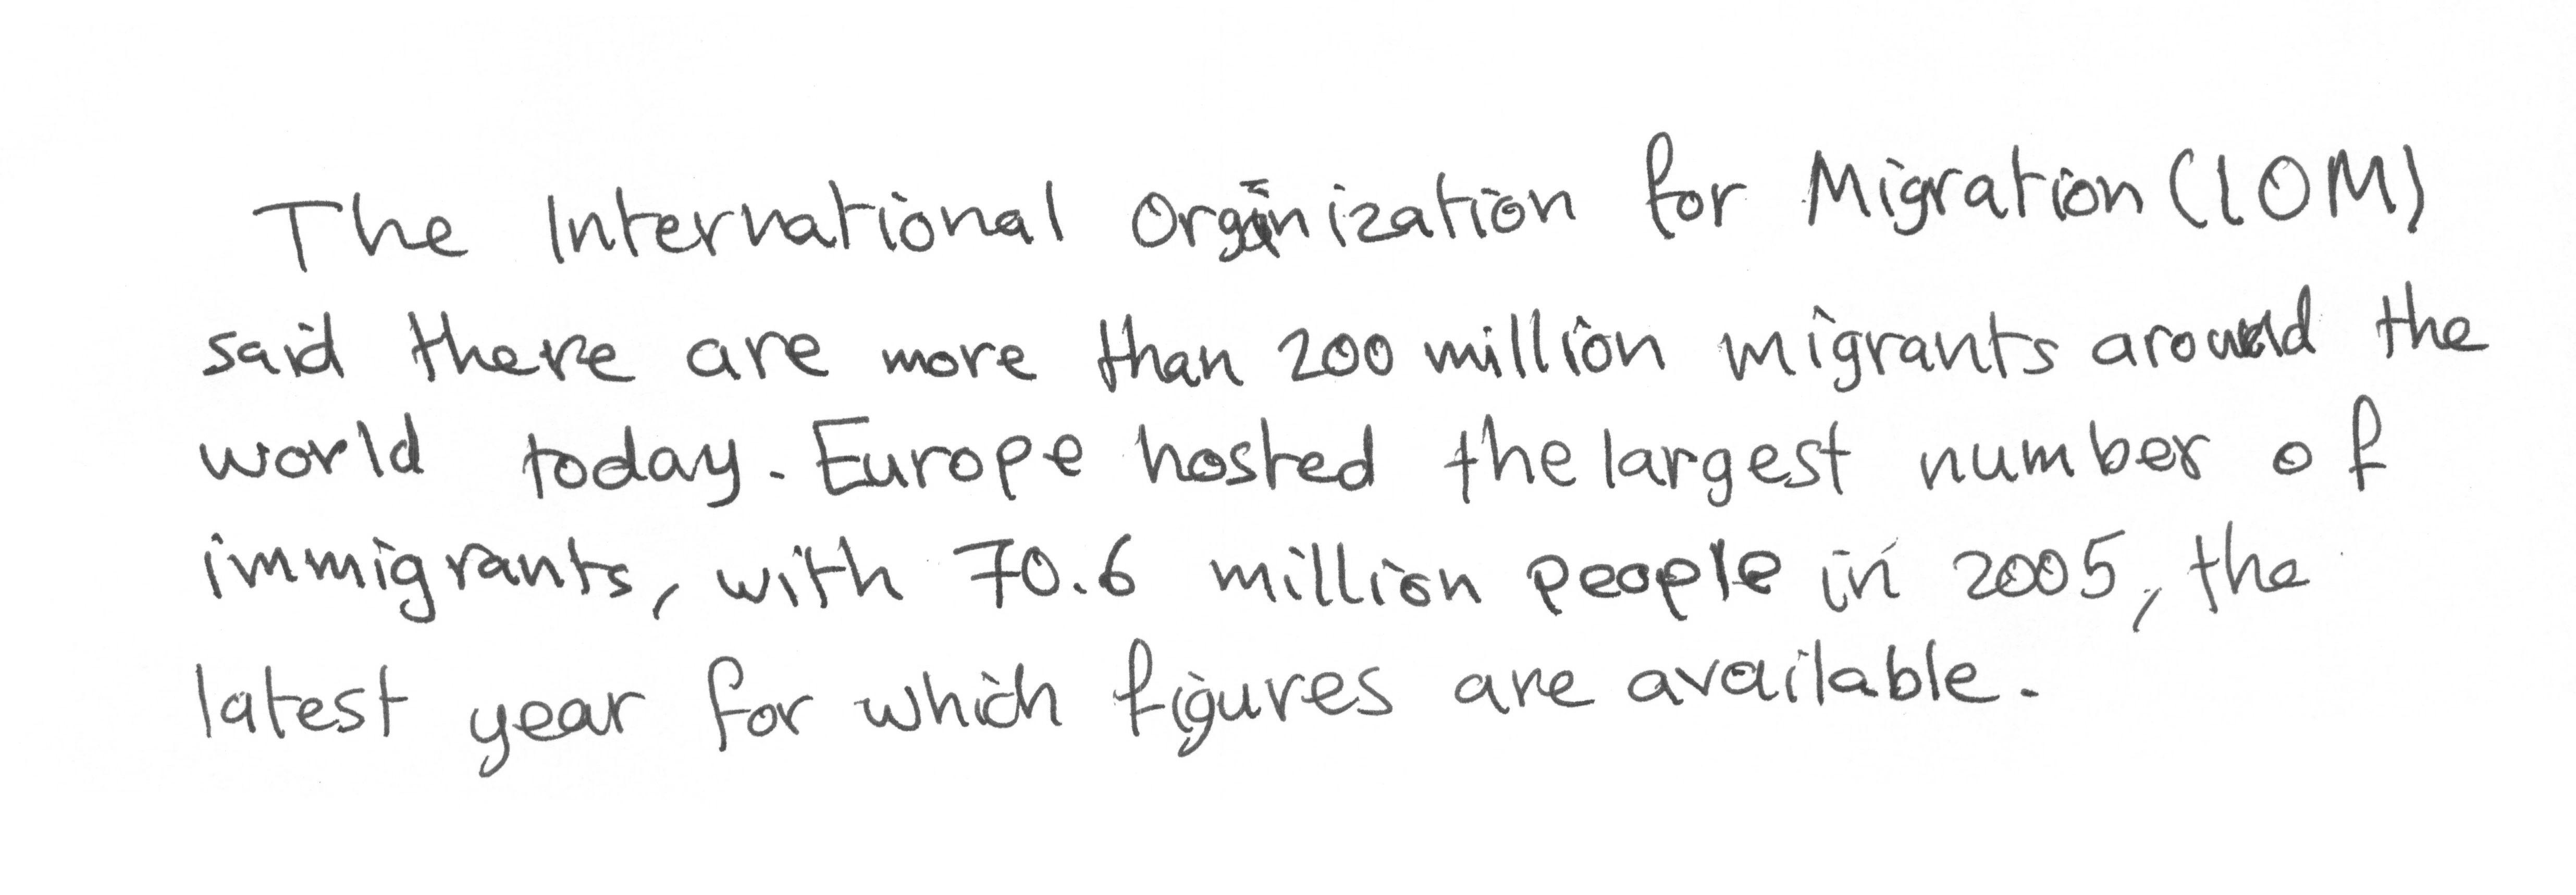 The International Organization for Migration (IOM)
said there are more than 200 million migrants around the
world today. Europe hosted the largest number of
immigrants, with 70.6 million people in 2005, the
latest year for which figures are available.